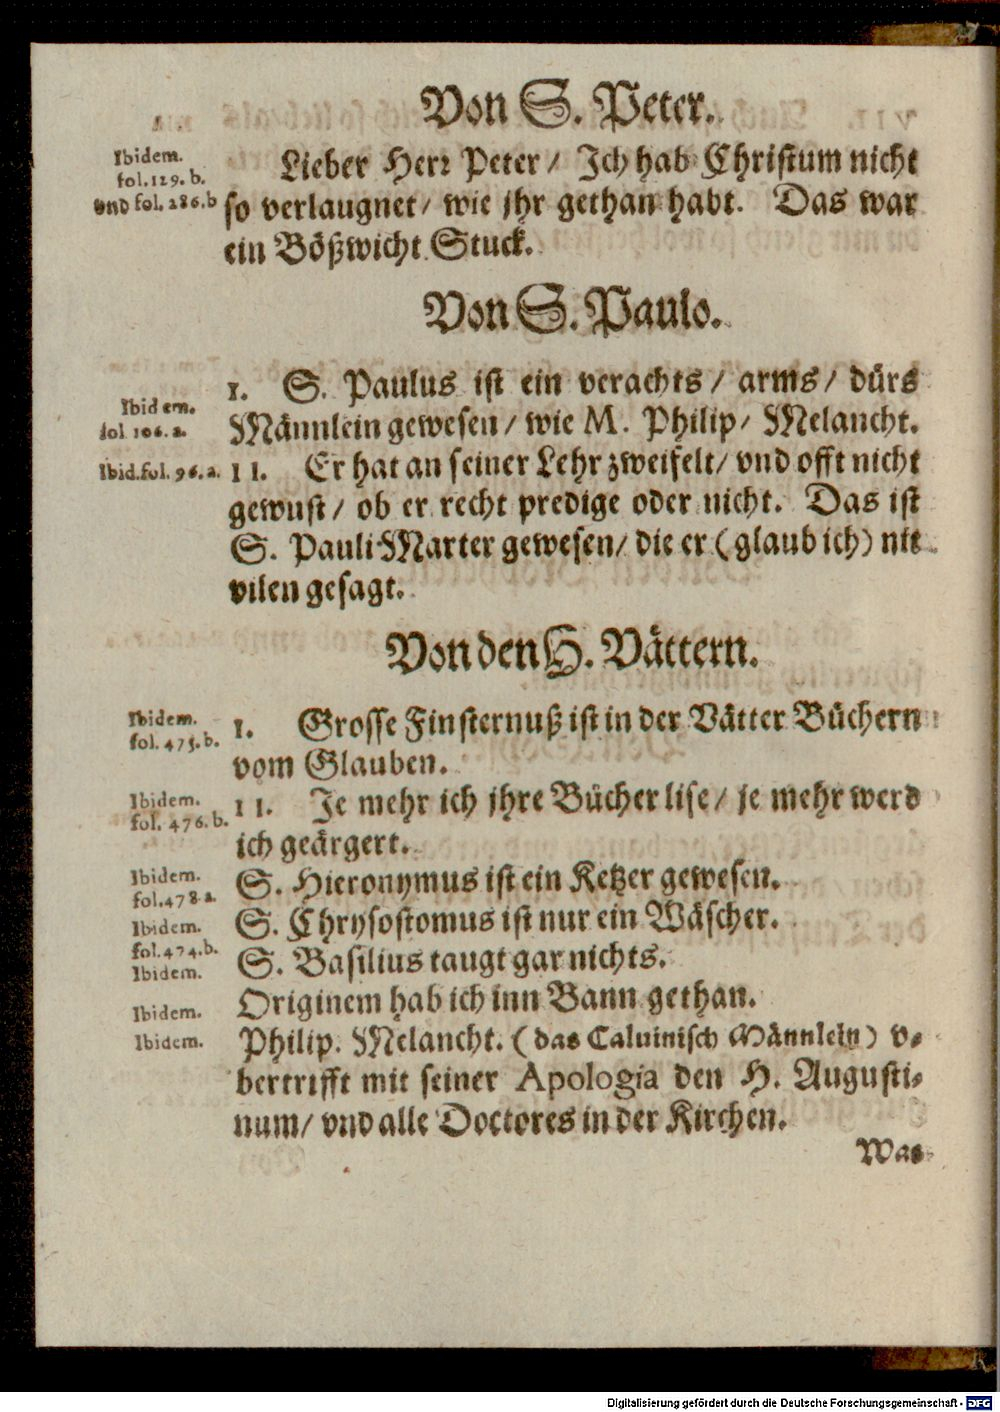 Von S. Peter.
Ibidem.
fol. 129. b.
vnd fol. 286. b
Lieber Herr Peter / Ich hab Christum nicht
so verlaugnet / wie jhr gethan habt. Das war
ein Bößwicht Stuck.
Von S. Paulo.
Ibidem.
fol 106. a.
I. S. Paulus ist ein verachts / arms / dürs
Männlein gewesen / wie M. Philip / Melancht.
Ibid. fol. 96. a.
II. Er hat an seiner Lehr zweifelt / vnd offt nicht
gewust / ob er recht predige oder nicht. Das ist
S. Pauli Marter gewesen / die er (glaub ich) nit
vilen gesagt.
Von den H. Vättern.
Ibidem.
fol. 475. b.
I. Grosse Finsternuß ist in der Vätter Büchern
vom Glauben.
Ibidem.
fol. 476. b.
II. Je mehr ich jhre Bücher lise / je mehr werd
ich geärgert.
Ibidem.
fol. 478 a.
S. Hieronymus ist ein Ketzer gewesen.
Ibidem.
fol. 474. b.
S. Chrysostomus ist nur ein Wäscher.
Ibidem.
S. Basilius taugt gar nichts.
Ibidem.
Originem hab ich inn Bann gethan.
Ibidem.
Philip. Melancht. (das Caluinisch Männlein) v⸗
bertrifft mit seiner Apologia den H. Augusti⸗
num / vnd alle Doctores in der Kirchen.
Was
Digitalisierung gefördert durch die Deutsche Forschungsgemeinschaft - DFG